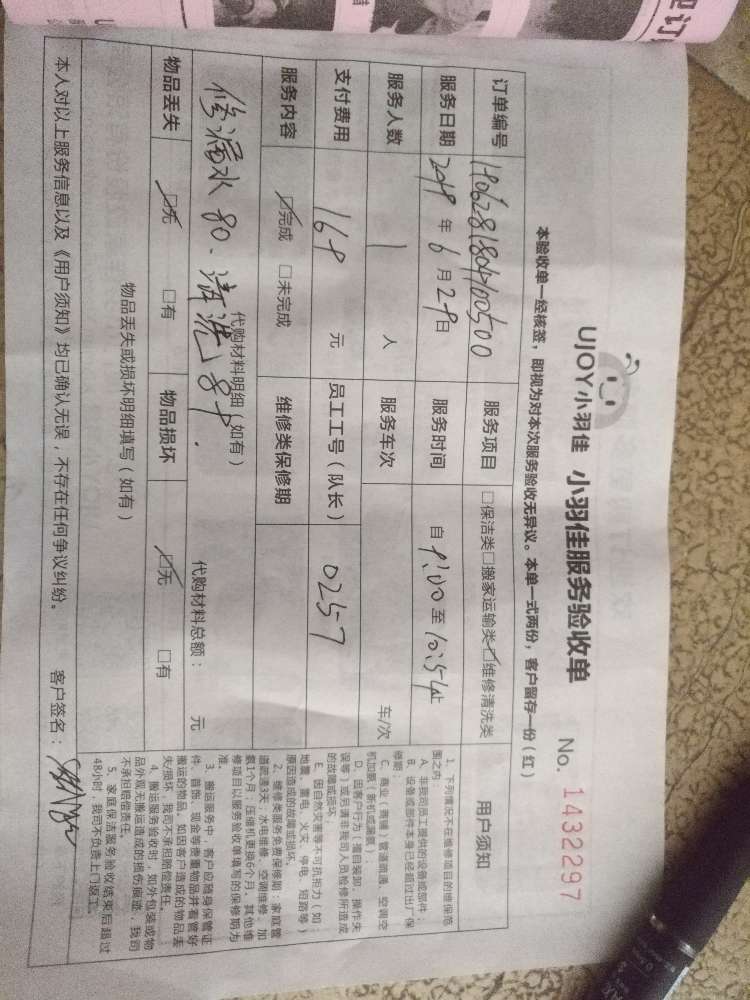 UJOY小羽佳 小羽佳服务验收单 No. 1432297
本验收单一经核签，即视为对本次服务验收无异议。本单一式两份，客户留存一份（红）
订单编号 服务项目 □保洁类□搬家运输类☑维修清洗类
服务日期 2019 年 6 月 29 日 服务时间 自 9:00 至 10:54止
服务人数 1 人 服务车次 车/次
支付费用 169 元 员工工号（队长） 0257
服务内容 ☑完成 □未完成 维修类保修期
代购材料明细（如有） 代购材料总额： 元
修漏水80.清洗89.
物品丢失 ☑无 □有 物品损坏 ☑无 □有
物品丢失或损坏明细填写（如有）
本人对以上服务信息以及《用户须知》均已确认无误，不存在任何争议纠纷。 客户签名：
用户须知
1、下列情况不在维修项目的维保范
围之内：
A、非我司员工提供的设备或部件；
B、设备或部件本身已经超过出厂保
修期；
C、商业（商铺）管道疏通、空调空
机加氟（新机或漏氟）；
D、因客户行为：擅自装卸、操作失
误等）或另请非我司人员检修所造成
的故障或损坏；
E、因自然灾害等不可抗拒力（如：
地震、雷电、火灾、停电、短路等）
原因造成的故障或损坏。
2、维修类服务免费保修期：家庭管
道疏通3天，水电维修、空调维修、加
氨1个月，压缩机更换6个月，其他维
修项目以服务验收单填写的保修期为
准。
3、搬运服务中，客户应随身保管证
件、首饰、现金等贵重物品并看管好
搬运的物品，如因客户造成的物品丢
失/损坏，我司不承担赔偿责任。
4、搬运服务验收时，如外包装或物
品外观无搬运造成的损伤痕迹，我司
不承担赔偿责任。
5、家庭保洁服务验收结束后超过
48小时，我司不负责上门返工。